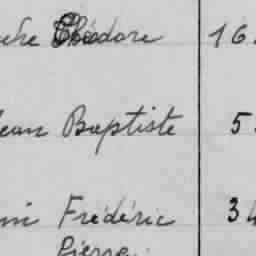 che Théodore 16.
Jean Baptiste 5
Frédéric 34
Pierre